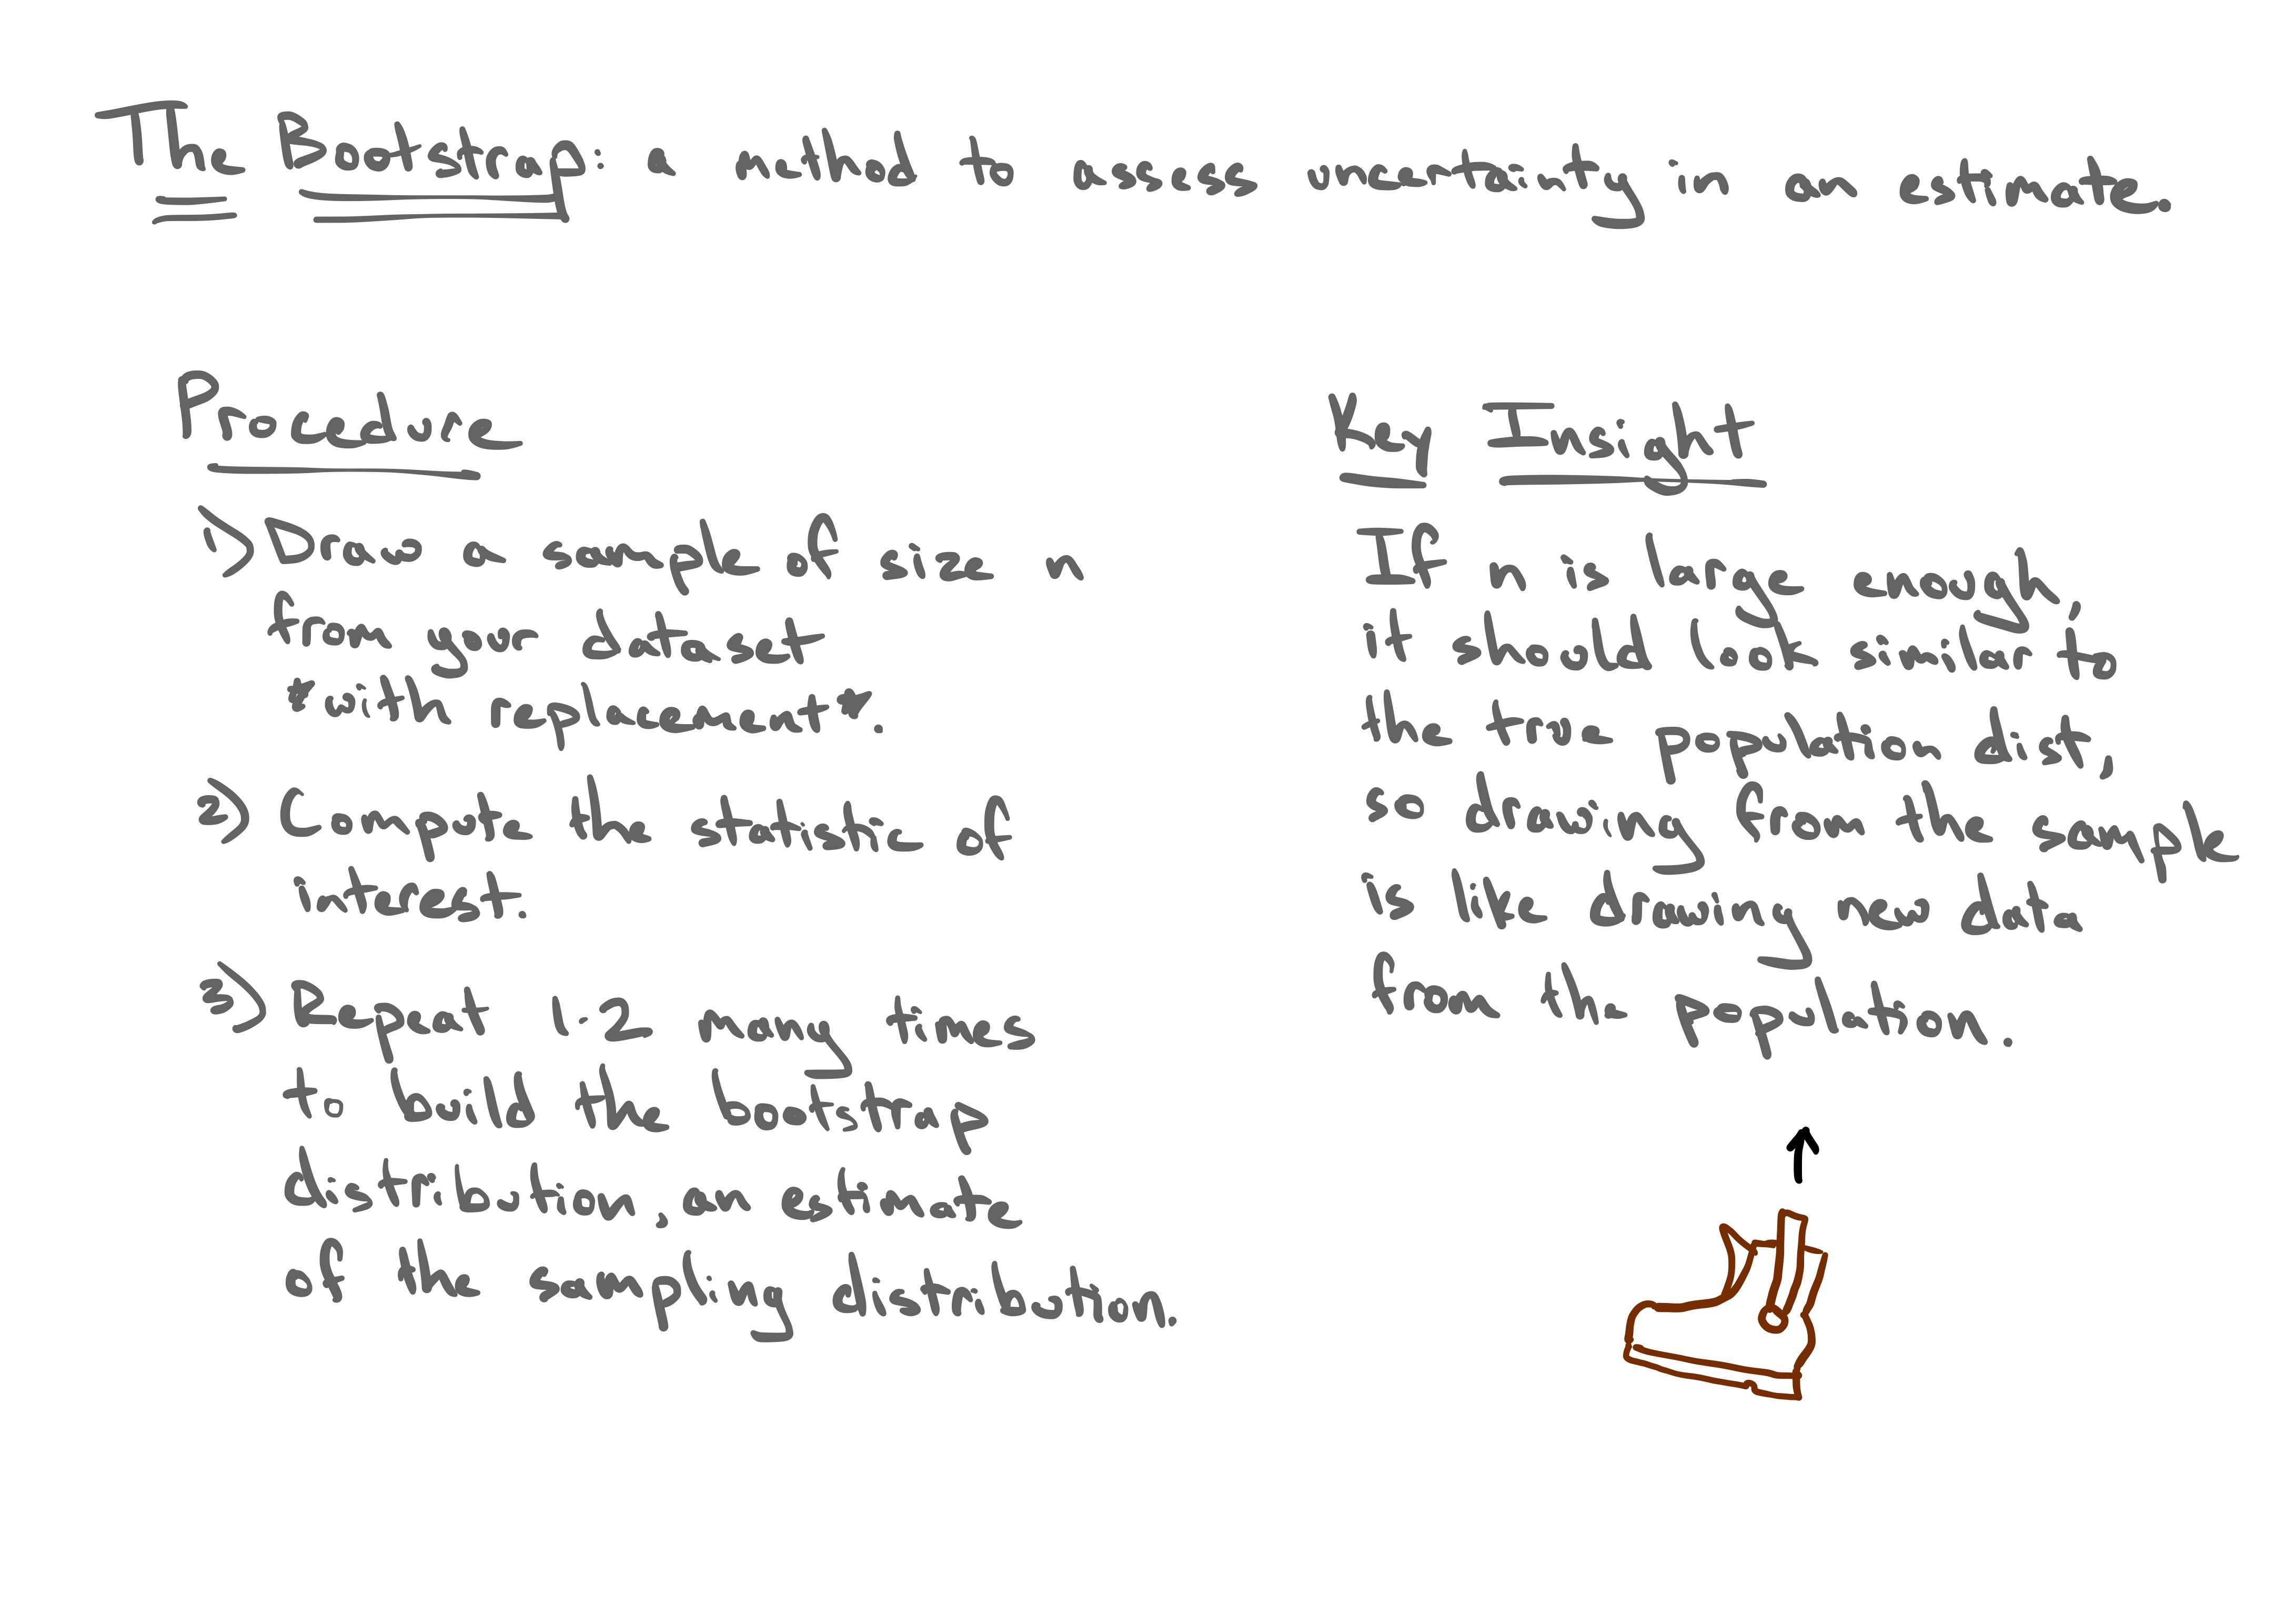 The Bootstrap: a method to assess uncertainty in an estimate.
Procedure
1) Draw a sample of size n
from your dataset
*with replacement*.
2) Compute the statistic of
interest.
3) Repeat 1-2 many times
to build the bootstrap
distribution, an estimate
of the sampling distribution.
Key Insight
If n is large enough,
it should look similar to
the true population dist,
so drawing from the sample
is like drawing new data
from the population.